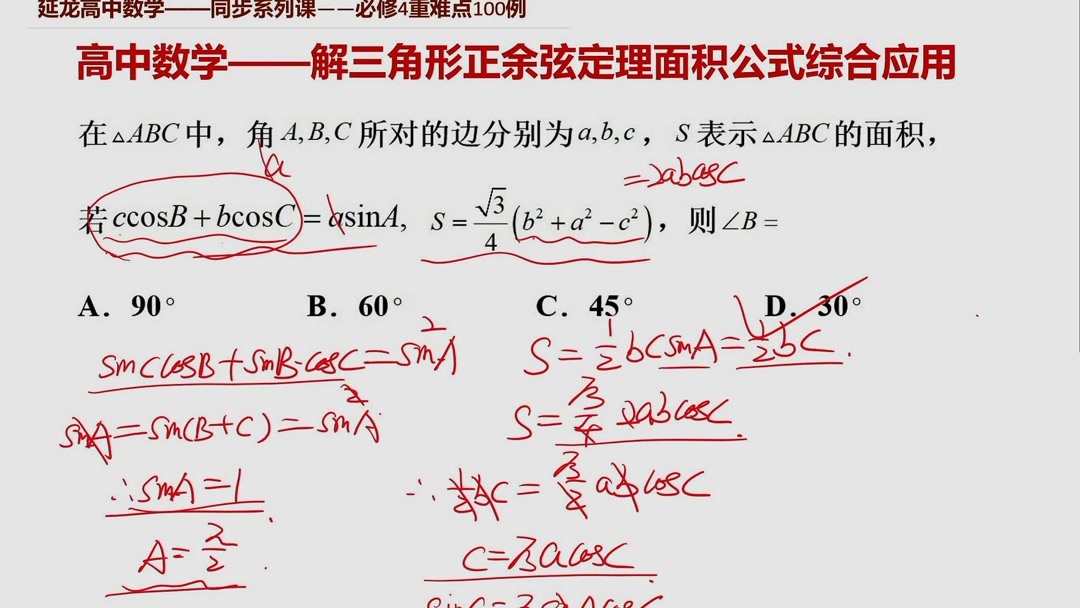 延龙高中数学——同步系列课——必修4重难点100例
高中数学——解三角形正余弦定理面积公式综合应用
在△ABC中，角A,B,C所对的边分别为a,b,c，S表示△ABC的面积，
a
=2abcosC
若ccosB+bcosC=asinA, S=√3/4(b²+a²−c²)，则∠B=
A．90° B．60° C．45° D．30°
sinCcosB+sinB·cosC=sin²A
S=1/2bcsinA=1/2bc.
sinA=sin(B+C)=sin²A
S=√3/4 2abcosC.
∴sinA=1
∴1/2bc=√3/2abcosC
A=π/2
c=√3acosC